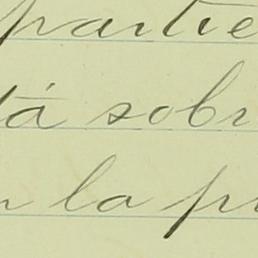 partie
tá sobr
n la pr